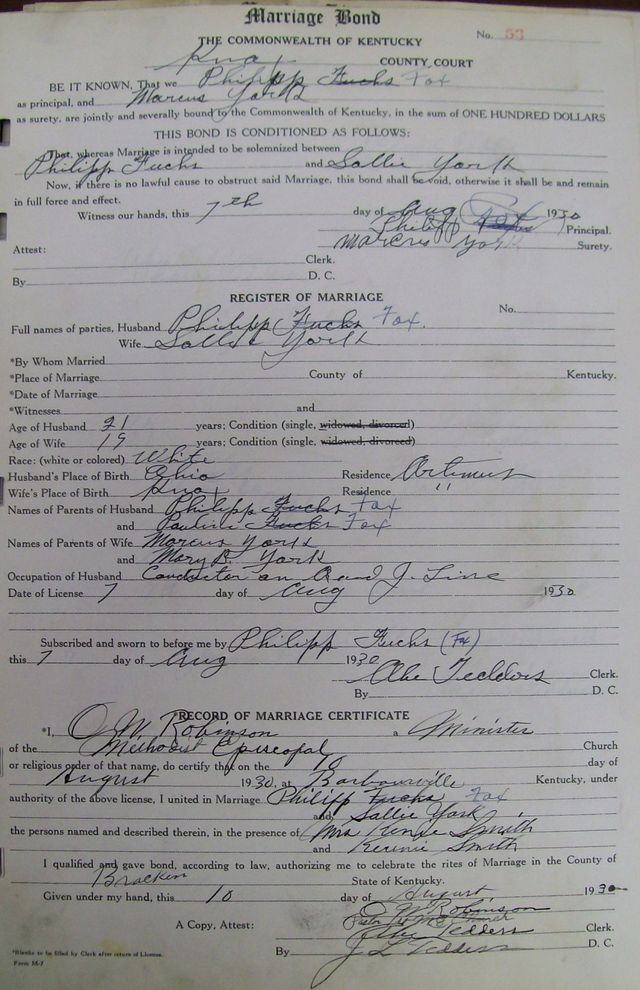 Marriage Bond
THE COMMONWEALTH OF KENTUCKY
No. 53
Knox COUNTY, COURT
BE IT KNOWN, That we Philipp Fuchs Fox
as principal, and Marcus York
as surety, are jointly and severally bound to the Commonwealth of Kentucky, in the sum of ONE HUNDRED DOLLARS
THIS BOND IS CONDITIONED AS FOLLOWS:
That, whereas Marriage is intended to be solemnized between
Philipp Fuchs and Sallie York
Now, if there is no lawful cause to obstruct said Marriage, this bond shall be void, otherwise it shall be and remain
in full force and effect.
Witness our hands, this 7th day of Aug 1930
Philipp Fox Principal.
Marcus York Surety.
Attest:
Clerk.
By D. C.
REGISTER OF MARRIAGE
No.
Full names of parties, Husband Philipp Fuchs Fox.
Wife Sallie York
*By Whom Married
*Place of Marriage County of Kentucky.
*Date of Marriage
*Witnesses and
Age of Husband 21 years; Condition (single, widowed, divorced)
Age of Wife 19 years; Condition (single, widowed, divorced)
Race: (white or colored) White
Husband's Place of Birth Ohio Residence Artemus
Wife's Place of Birth Knox Residence "
Names of Parents of Husband Philipp Fuchs Fox
and Pauline Fuchs Fox
Names of Parents of Wife Marcus York
and Mary R. York
Occupation of Husband Conductor on A and J. Line
Date of License 7 day of Aug 1930
Subscribed and sworn to before me by Philipp Fuchs (Fox)
this 7 day of Aug 1930
Abe Tedders Clerk.
By D. C.
RECORD OF MARRIAGE CERTIFICATE
*I, O. M. Robinson a Minister
of the Methodist Episcopal Church
or religious order of that name, do certify that on the 10 day of
August 1930, at Barbourville Kentucky, under
authority of the above license, I united in Marriage Philipp Fuchs Fox
and Sallie York
the persons named and described therein, in the presence of Mrs Smith
and Smith
I qualified and gave bond, according to law, authorizing me to celebrate the rites of Marriage in the County of
Bracken State of Kentucky.
Given under my hand, this 10 day of August 1930
O. M. Robinson
Pastor
A Copy, Attest: Abe Tedders Clerk.
By J L Tedders D. C.
*Blanks to be filled by Clerk after return of License.
Form M-7